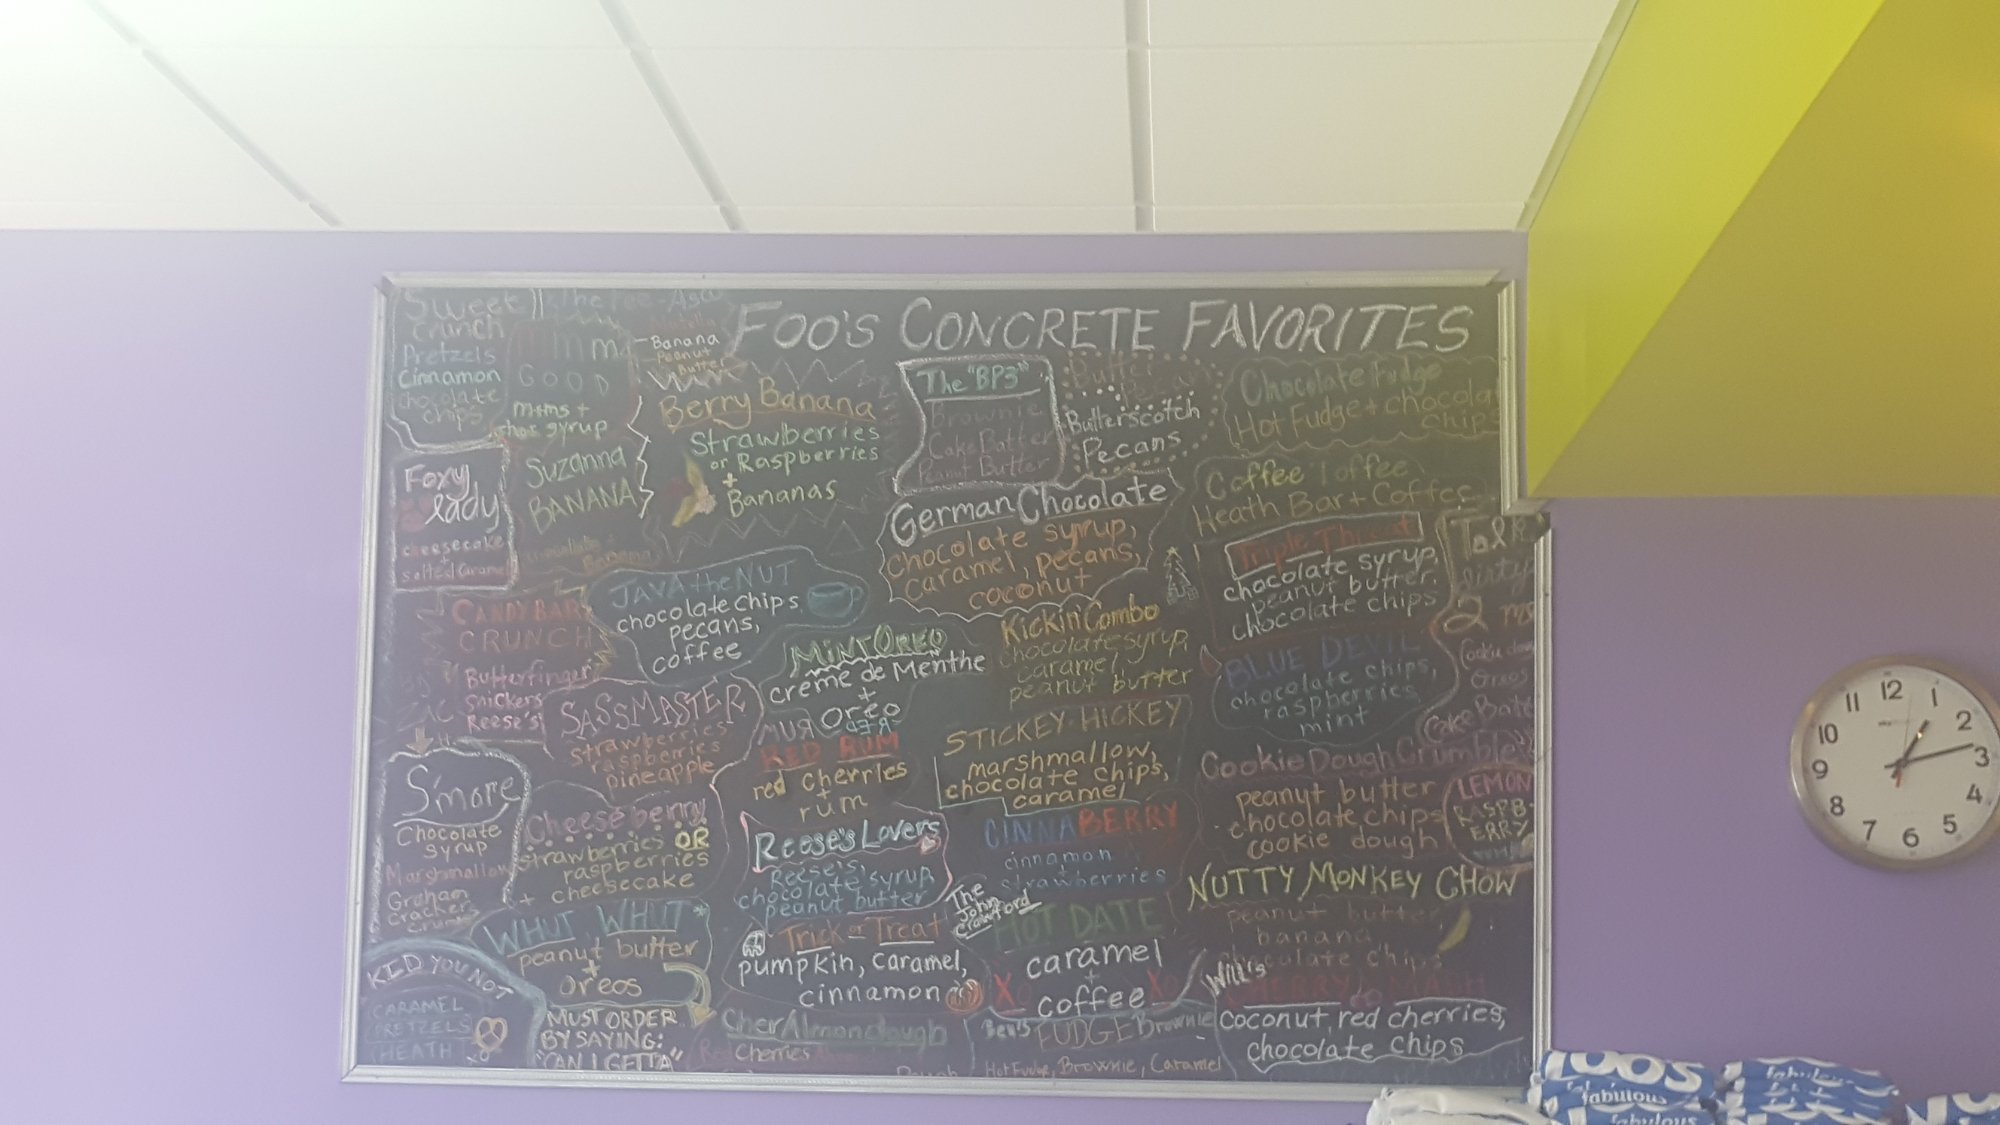 FOO'S CONCRETE FAVORITES
Sweet
Crunch
Pretzels
Cinnamon
chocolate
chips
GOOD
m+ms +
choc syrup
Banana
Peanut
Butter
Berry Banana
Strawberries
or Raspberries
+
Bananas
The "BP3"
Brownie
Cake Batter
Peanut Butter
Butter
Butterscotch
Pecans
Chocolate Fudge
Hot Fudge + chocolat
chips
Foxy
lady
cheesecake
+
salted caramel
Suzanna
BANANA
Banana
German Chocolate
chocolate syrup,
caramel, pecans,
coconut
Coffee Toffee
Heath Bar + Coffee
Triple Threat
chocolate syrup,
peanut butter,
chocolate chips
Talk
dirty
2 me
Oreos
Cake Batte
CANDY BAR
CRUNCH
Butterfinger
Snickers
Reese's
JAVA the NUT
chocolate chips,
pecans,
coffee
MINT OREO
creme de Menthe
+
Oreo
Kickin' Combo
chocolate syrup,
caramel,
peanut butter
BLUE DEVIL
chocolate chips,
raspberries
mint
SASSMASTER
strawberries
raspberries
pineapple
RED RUM
red cherries
+
rum
STICKEY HICKEY
marshmallow,
chocolate chips,
caramel
Cookie Dough Crumble
peanut butter
chocolate chips
cookie dough
LEMON
RASPB-
ERRY
S'more
Chocolate
syrup
Marshmallow
Graham
Crackers
Cheeseberry
strawberries OR
raspberries
+ cheesecake
Reese's Lovers
Reese's,
chocolate syrup
peanut butter
CINNABERRY
cinnamon
+
strawberries
NUTTY MONKEY CHOW
peanut butter
banana
chocolate chips
WHUT WHUT*
peanut butter
+
Oreos
MUST ORDER
BY SAYING:
"CAN I GETTA"
Trick or Treat
pumpkin, caramel,
cinnamon
The
John
Crawford
HOT DATE
caramel
+
coffee
XO
XO
Will's
coconut, red cherries,
chocolate chips
KID YOU NOT
CARAMEL
PRETZELS
HEATH
XO
CherAlmondough
Cherries
Ben's
FUDGE Brownie
Hot Fudge, Brownie, Caramel
12
1
2
3
4
5
6
7
8
9
10
11
FOO'S
fabulous
fabulous
fabulous